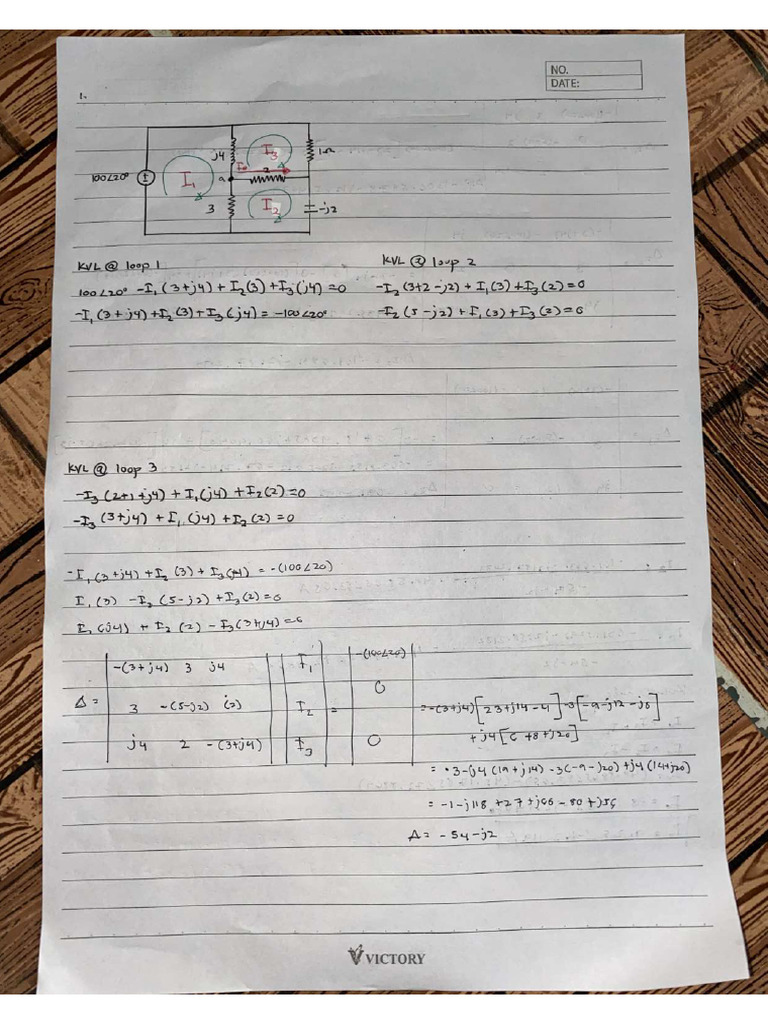 NO.
DATE:
1.
j4
I3
1Ω
100∠20°
I1
Io
a
2
3
I2
-j2
KVL @ loop 1
100∠20° -I1(3+j4) + I2(3) + I3(j4) = 0
-I1(3+j4) + I2(3) + I3(j4) = -100∠20°
KVL @ loop 2
-I2(3+2-j2) + I1(3) + I3(2) = 0
-I2(5-j2) + I1(3) + I3(2) = 0
KVL @ loop 3
-I3(2+1+j4) + I1(j4) + I2(2) = 0
-I3(3+j4) + I1(j4) + I2(2) = 0
-I1(3+j4) + I2(3) + I3(j4) = -(100∠20)
I1(3) - I2(5-j2) + I3(2) = 0
I1(j4) + I2(2) - I3(3+j4) = 0
-(3+j4) 3 j4 I1 -(100∠20)
Δ = 3 -(5-j2) (2) I2 = 0
j4 2 -(3+j4) I3 0
= -(3+j4)[23+j14-4] -3[-9-j12-j8]
+j4[6+8+j20]
= -3-j4(19+j14) -3(-9-j20) + j4(14+j20)
= -1-j118 + 27+j60 - 80+j56
Δ = -54-j2
VICTORY